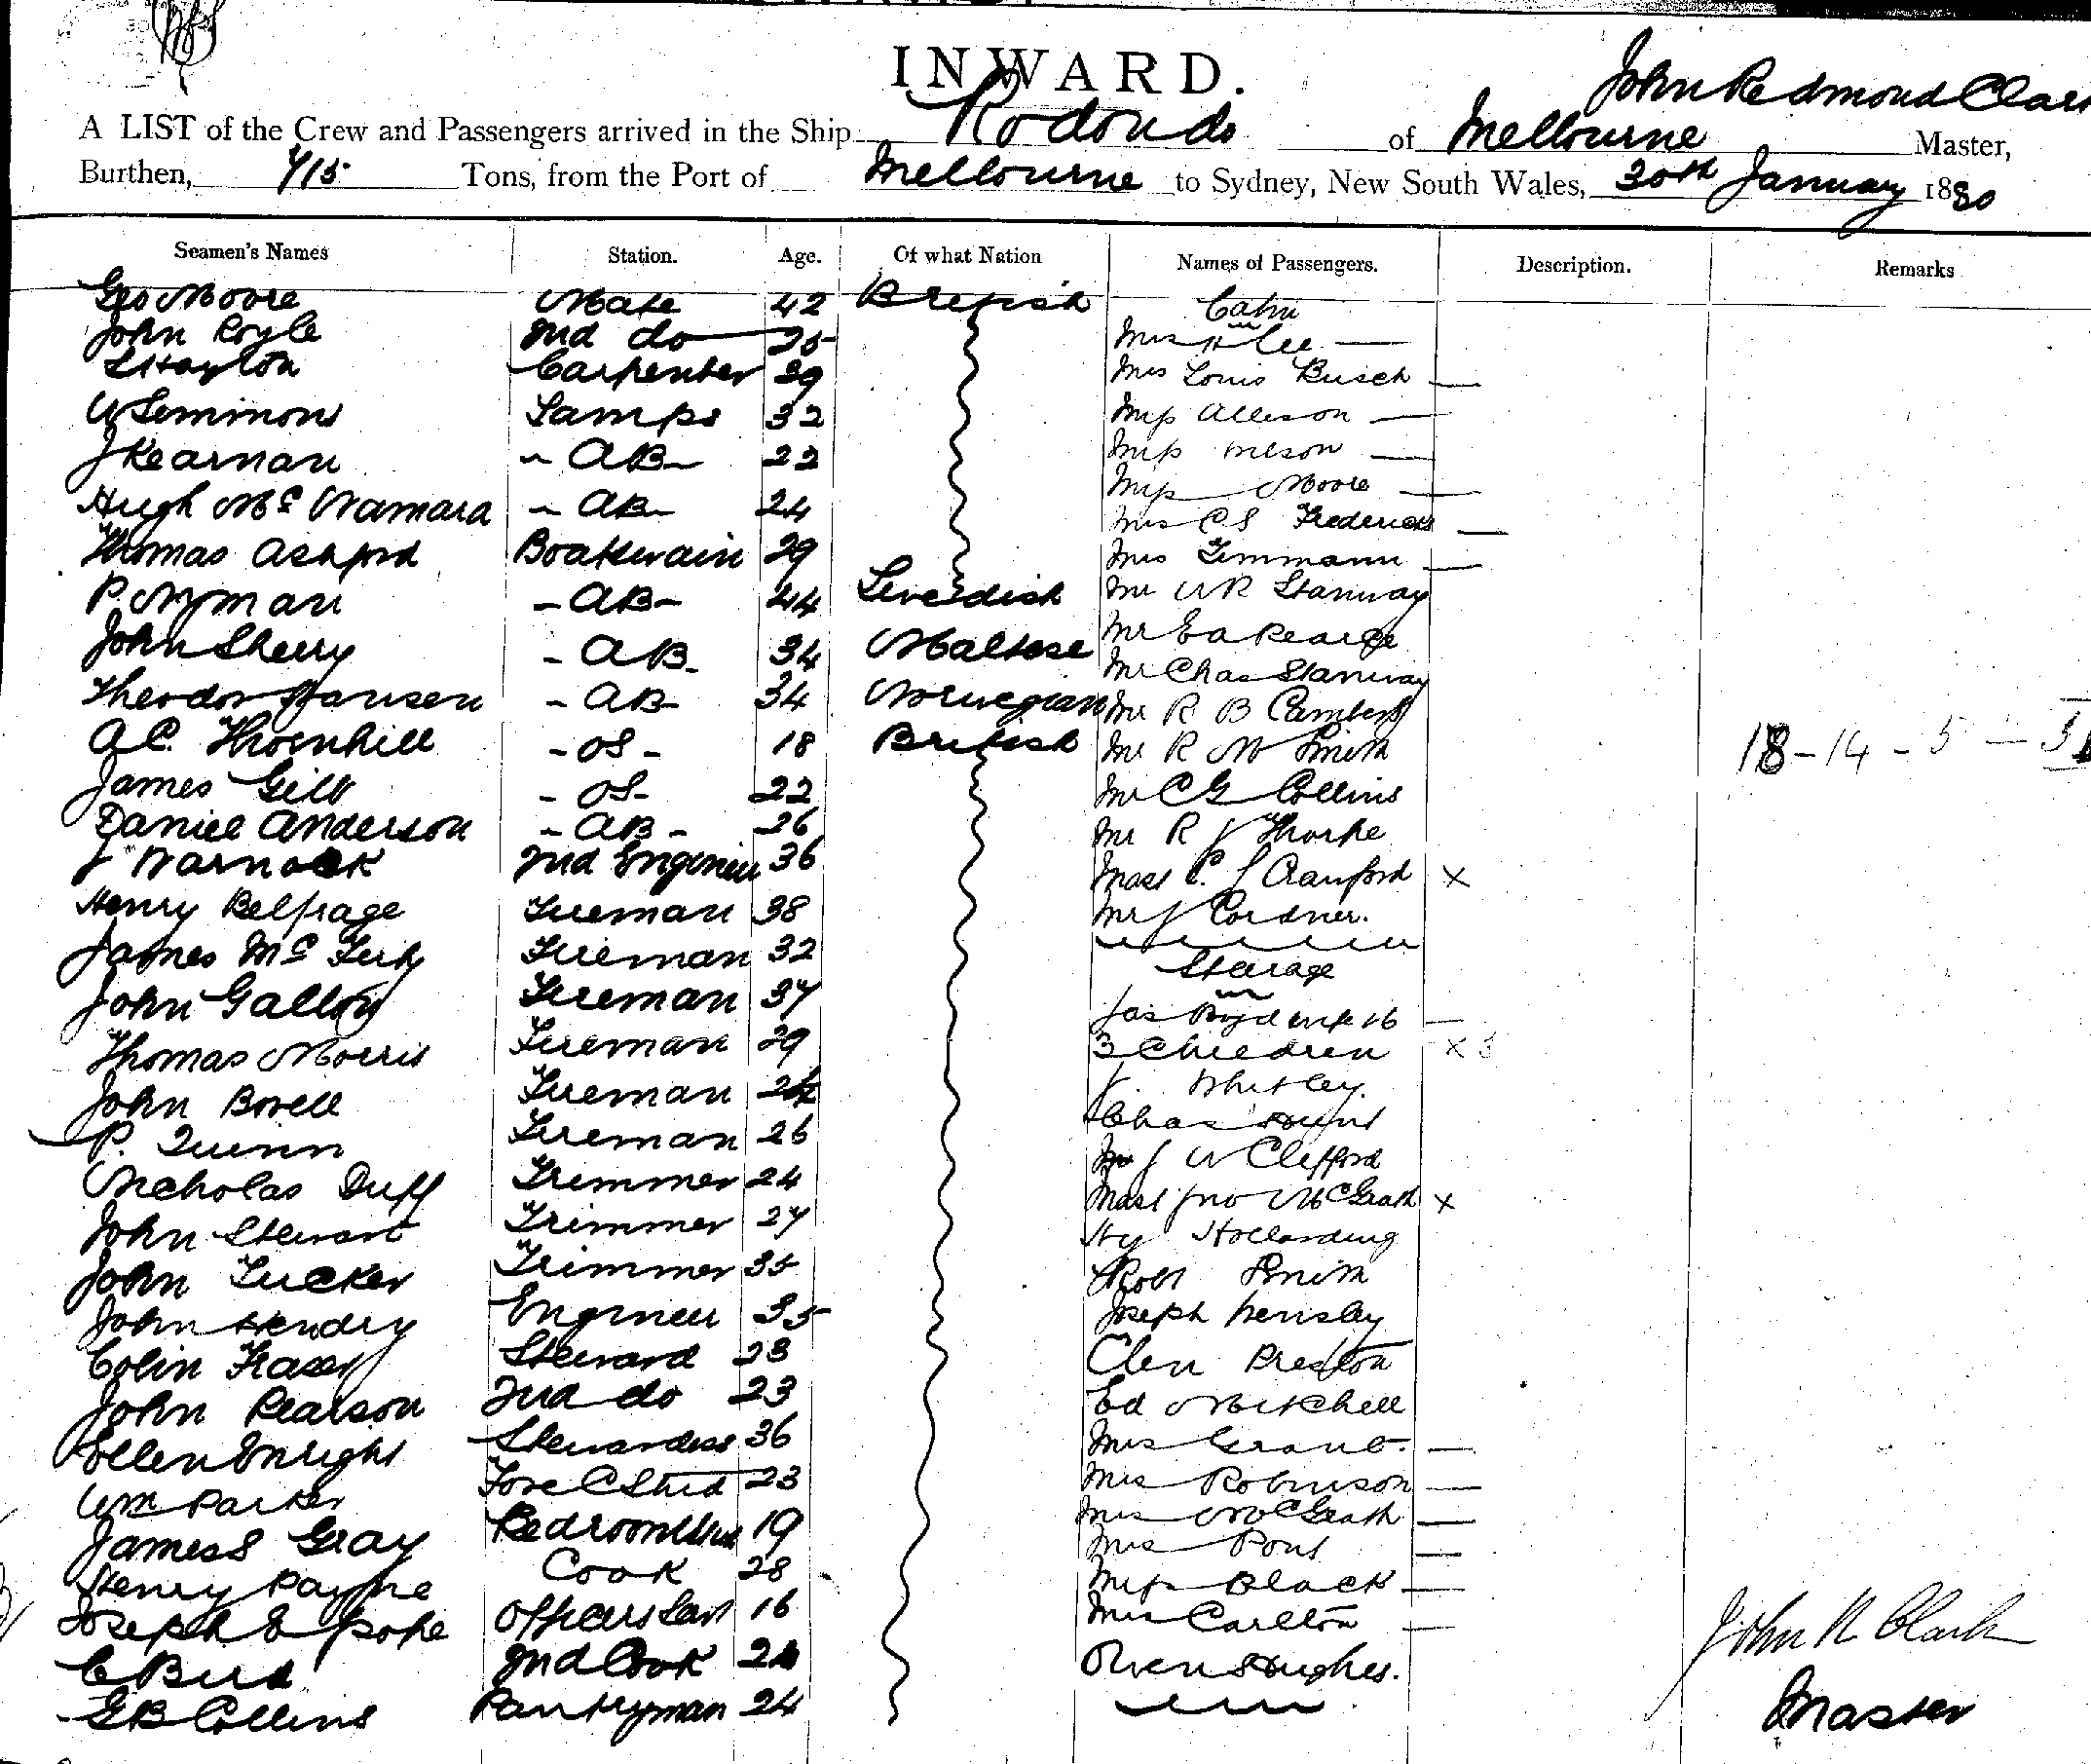 INWARD.
John Redmond Clark
A LIST of the Crew and Passengers arrived in the Ship Rodondo of Melbourne Master,
Burthen, 715 Tons, from the Port of Melbourne to Sydney, New South Wales, 30th January 1880
Seamen's Names Station. Age. Of what Nation Names of Passengers. Description. Remarks
Geo Moore Mate 42 British Cabin
John Royle 2nd do 25 Mrs Lee
Hayton Carpenter 39 Mrs Louis Busch
W Simmons Lamps 32 Miss Allison
J Kearnan AB 22 Miss
Hugh McNamara AB 24 Miss Moore
Thomas Ashford Boatswain 29 Mrs C S Fredericks
P. Nyman AB 44 Swedish Mrs Timmann
John Sherry AB 34 Maltese Mr W R Stanway
Theodor Hansen AB 34 Norwegian Mr E A Pearce
A C. Thornhill OS 18 British Mr Chas Stanway
James OS 22 Mr R B
Daniel Anderson AB 26 Mr R M Smith
J Warnock 2nd Engineer 36 Mr C G Collins
Henry Belfrage Fireman 38 Mr R J Thorpe
James Mc Fireman 32 Mast C. J Cranford x
John Fireman 37 Mr J Cordner.
Thomas Morris Fireman 29 Steerage
John Bovell Fireman Jas Boyd wife 16
P. Quinn Fireman 26 3 Children x 3
Nicholas Duff Trimmer 24 J. Whitley.
John Stewart Trimmer 27 Chas Hunt
John Tucker Trimmer 35 J W Clifford
John Hendry Engineer 35 Mast Jno McGrath x
Colin Fraser Steward 23 Hy
John Pearson 2nd do 23 Robt Smith
Ellen Enright Stewardess 36 Joseph Hensley
Wm Parker Fore C Stwd 23 Clen Preston
James S Gray Bedroom Stwd 19 Ed Mitchell
Henry Payne Cook 28 Mrs Grant.
Joseph E Pope Officers Servt 16 Mrs Robinson
C Bird 2nd Cook Mrs McGrath
G B Collins Pantryman 24 Mrs Pont
Miss Black
Mrs Carlton
Owen Hughes.
18 - 14 - 5
John R Clark
Master